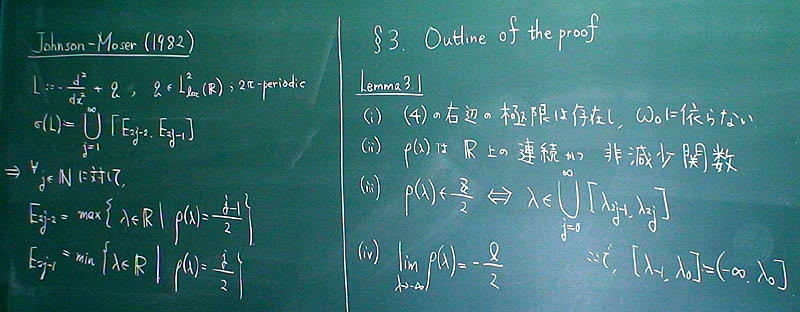 Johnson-Moser (1982)
L := -d²/dx² + q, q ∈ L²loc(ℝ) ; 2π-periodic
σ(L) = ∞⋃j=1 [E2j-2, E2j-1]
⇒ ∀j∈ℕ に対して,
E2j-2 = max{ λ∈ℝ | ρ(λ) = (j-1)/2 }
E2j-1 = min{ λ∈ℝ | ρ(λ) = j/2 }
§3. Outline of the proof
Lemma 3.1
(i) (4)の右辺の極限は存在し, ω₀に依らない
(ii) ρ(λ)は ℝ上の連続かつ 非減少関数
(iii) ρ(λ) ∈ ℤ/2 ⇔ λ ∈ ∞⋃j=0 [λ2j-1, λ2j]
(iv) lim λ→-∞ ρ(λ) = -ℓ/2 ∵で, [λ-1, λ0] = (-∞, λ0]